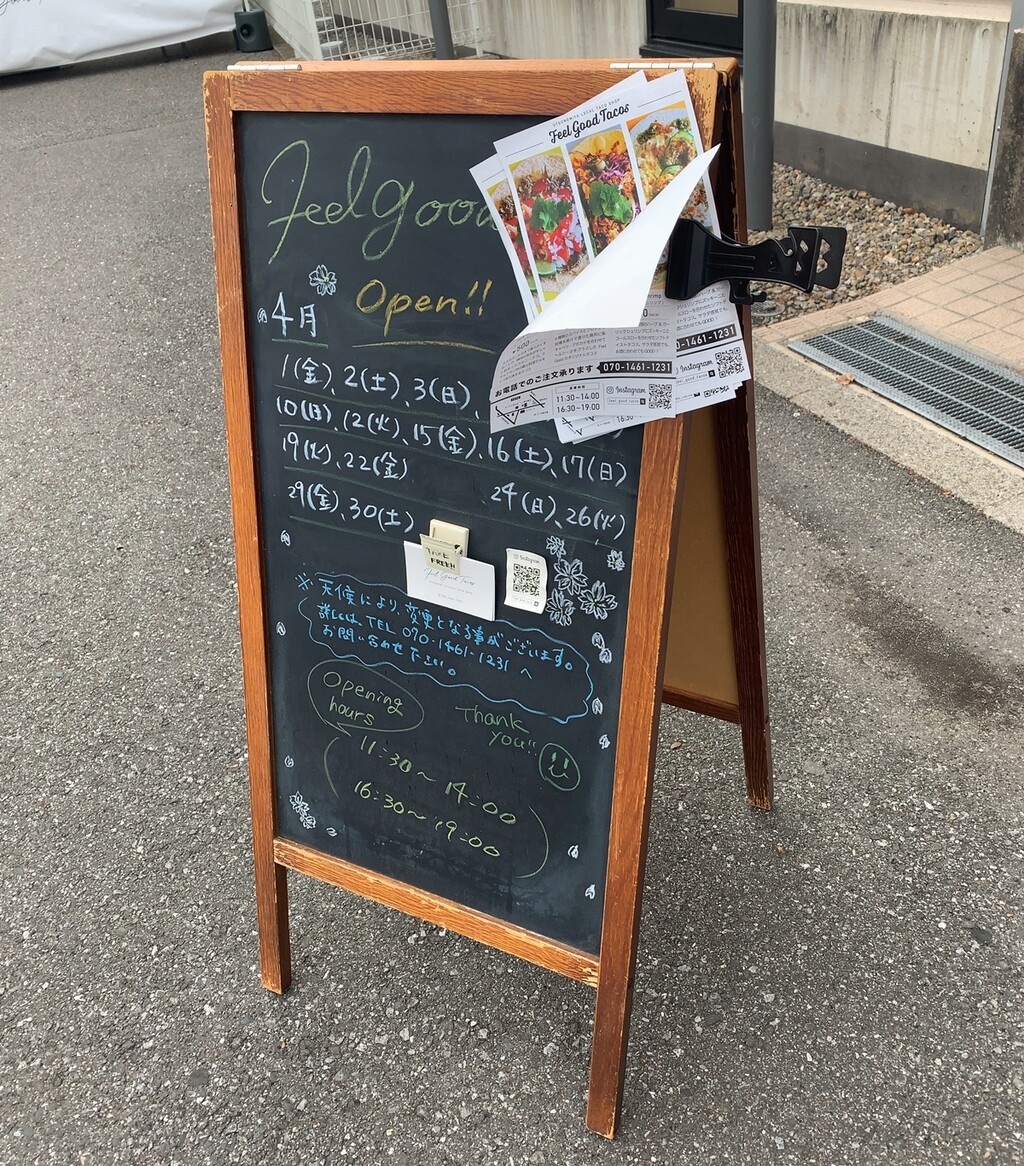 Feel good
Open!!
4月
1(金)、2(土)、3(日)、
10(日)、12(火)、15(金)、16(土)、17(日)
19(火)、22(金)
24(日)、26(火)
29(金)、30(土)
※天候により、変更となる事がございます。
詳しくは、TEL 070-1461-1231 へ
お問い合わせ下さい。
Opening
hours
Thank
you!!
11:30～14:00
16:30～19:00
TAKE
FREE!!
Feel Good Tacos
Instagram
UTSUNOMIYA LOCAL TACO SHOP
Feel Good Tacos
お電話でのご注文承ります 070-1461-1231
11:30-14:00
16:30-19:00
Instagram
feel_good_tacos